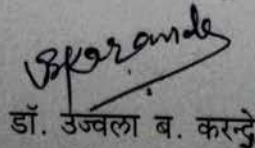 डॉ. उज्वला ब. करन्दे